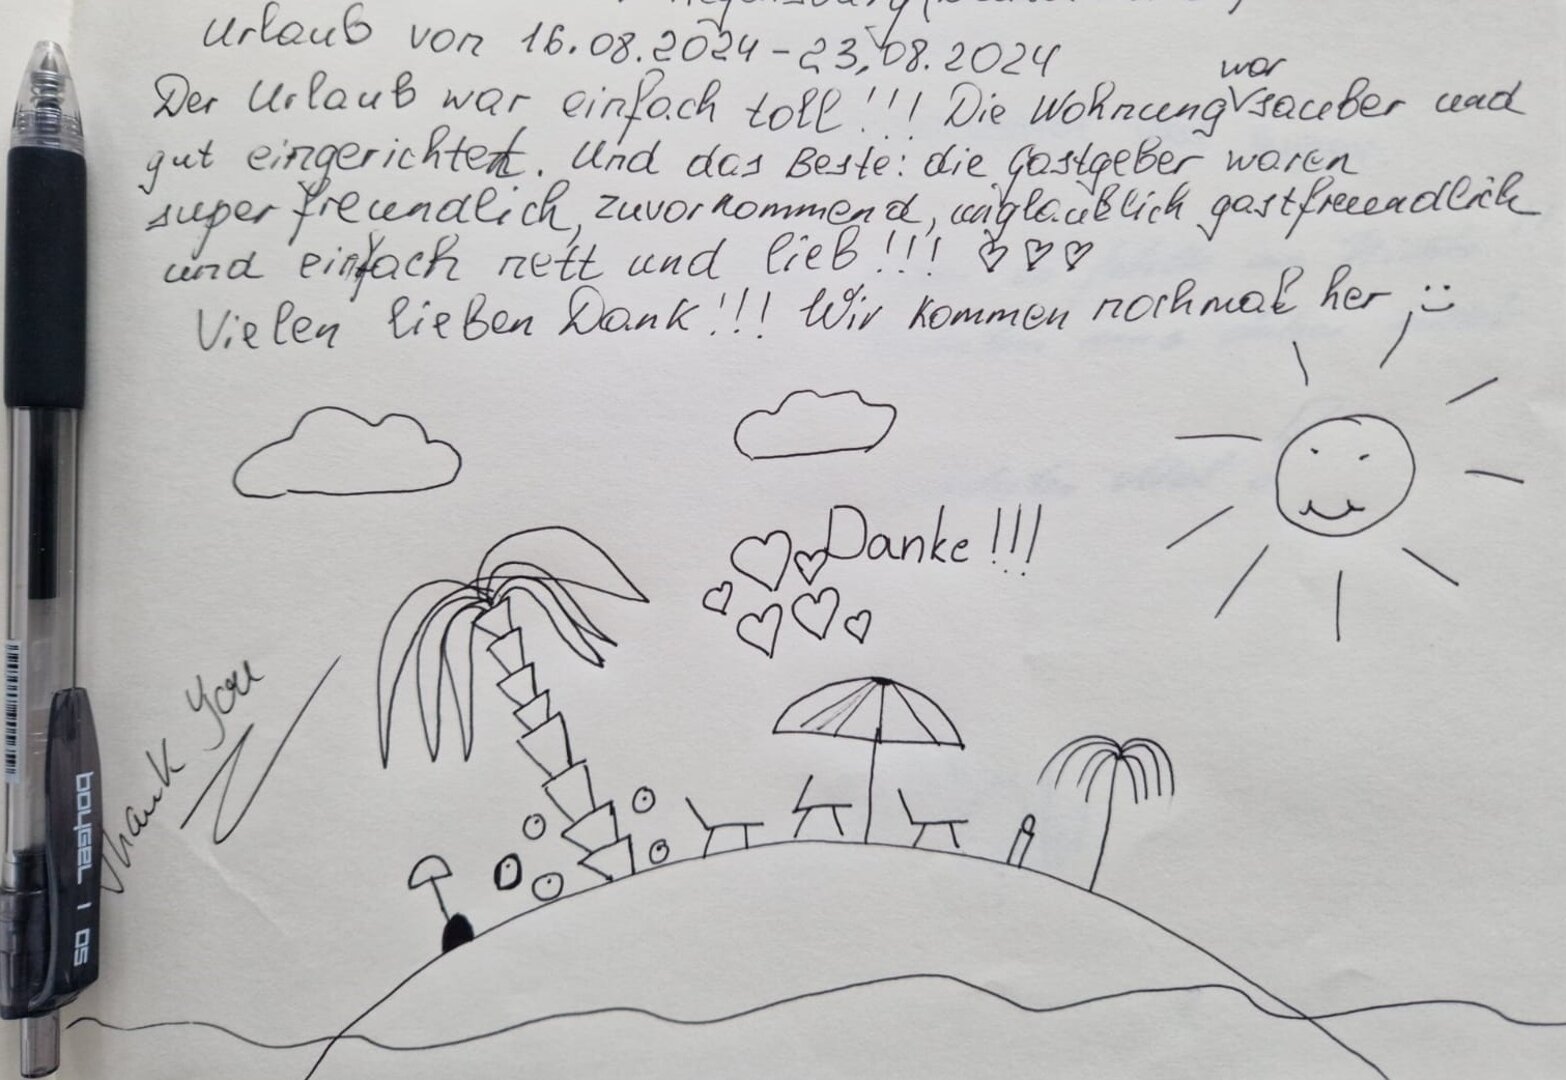 Regensburg
Urlaub von 16.08.2024 - 23.08.2024
war
Der Urlaub war einfach toll!!! Die Wohnung sauber und
gut eingerichtet. Und das Beste: die Gastgeber waren
super freundlich, zuvorkommend, unglaublich gastfreundlich
und einfach nett und lieb!!! ♡♡♡
Vielen lieben Dank!!! Wir kommen nochmal her :)
Danke!!!
Thank You
bangel | 05